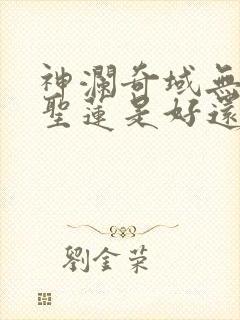 神瀾奇域無
聖蓮是好還
劉金荣